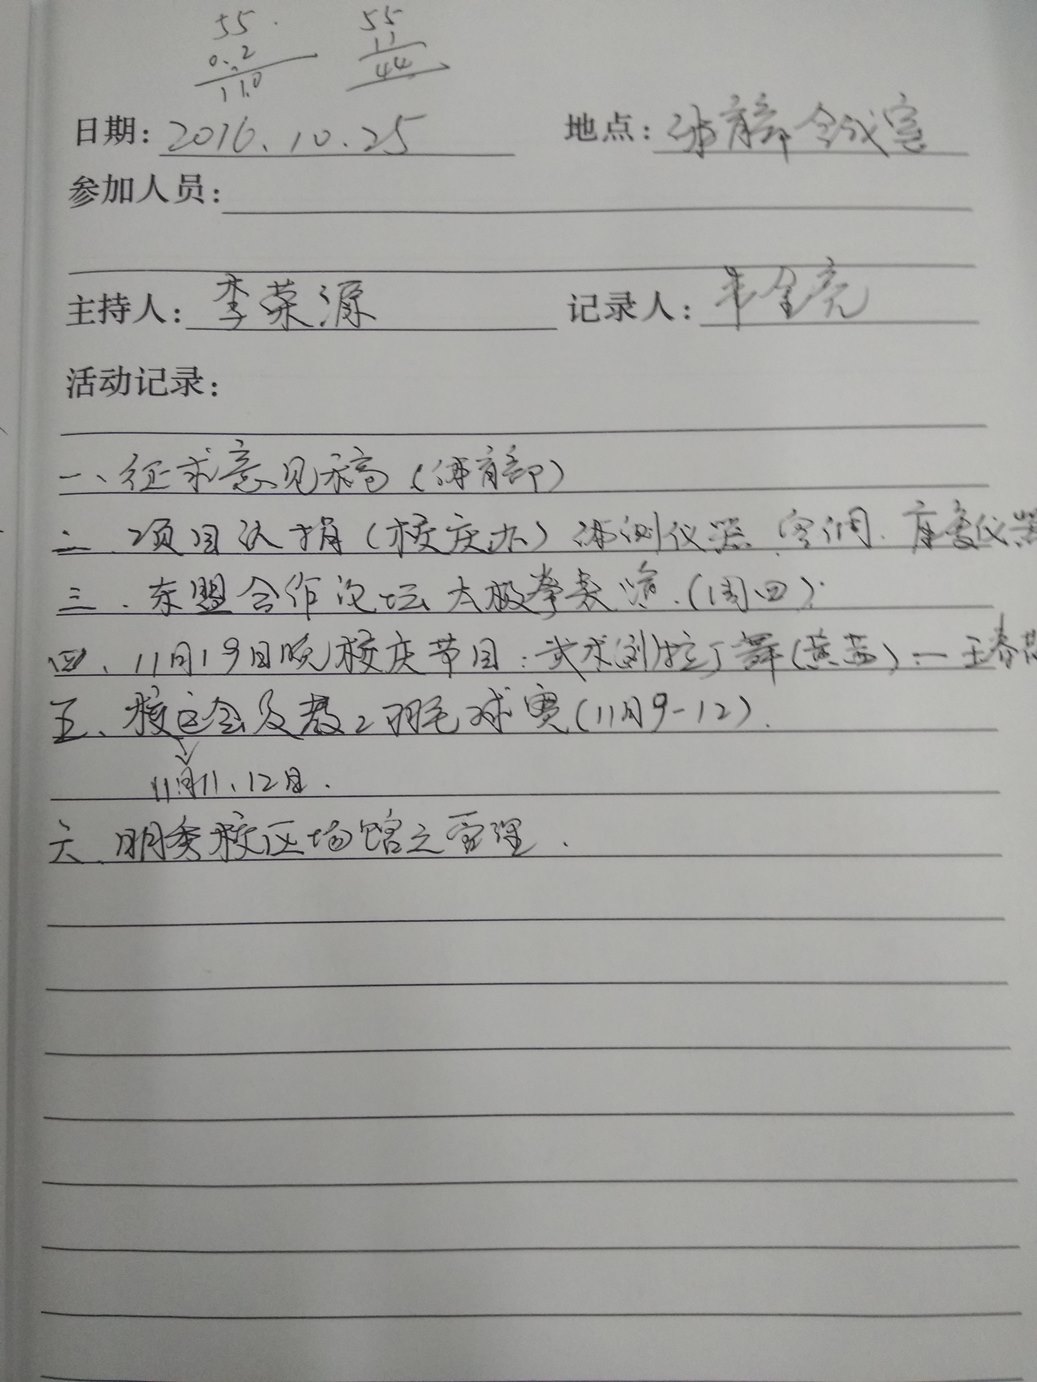 55 55
0.2 11
11.0 44
日期: 2016.10.25 地点: 体育部会议室
参加人员:
主持人: 李荣源 记录人: 金亮
活动记录:
一、征求意见稿(体育部)
二、项目认捐(校庆办)体测仪器、空调、康复仪器
三、东盟合作论坛太极拳表演.(周四)
四、11月19日晚校庆节目:武术浏拉丁舞(黄茜)—王春
五、校运会及教工羽毛球赛(11月9-12).
11月11、12日.
六、明秀校区场馆之管理.